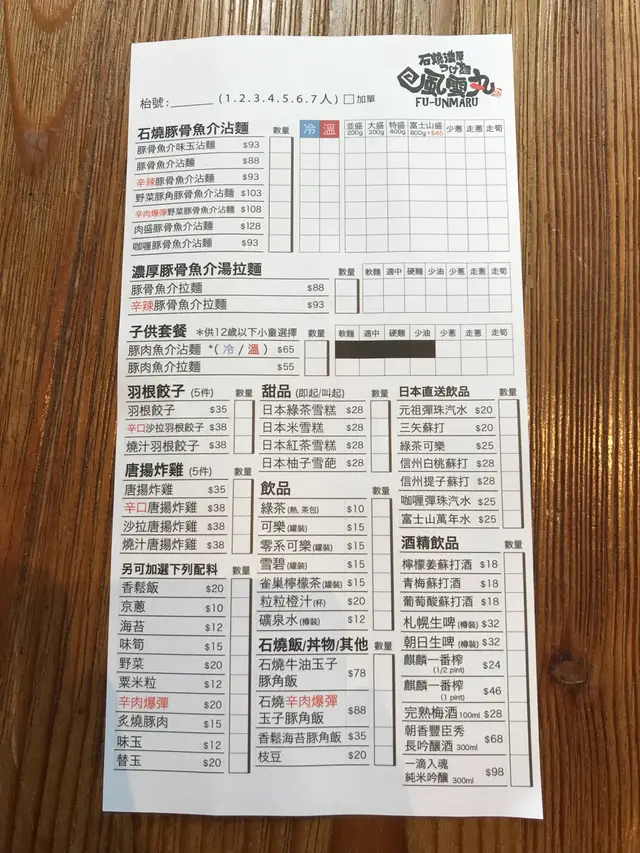 石燒濃厚
つけ麵
風雲丸
FU-UNMARU
枱號:______ (1.2.3.4.5.6.7人) □加單
石燒豚骨魚介沾麵 數量 冷 溫 並盛 200g 大盛 300g 特盛 400g 富士山盛 800g +$46 少蔥 走蔥 走筍
豚骨魚介味玉沾麵 $93
豚骨魚介沾麵 $88
辛辣豚骨魚介沾麵 $93
野菜豚角豚骨魚介沾麵 $103
辛肉爆彈野菜豚骨魚介沾麵 $108
肉盛豚骨魚介沾麵 $128
咖喱豚骨魚介沾麵 $93
濃厚豚骨魚介湯拉麵 數量 軟麵 適中 硬麵 少油 少蔥 走蔥 走筍
豚骨魚介拉麵 $88
辛辣豚骨魚介拉麵 $93
子供套餐 *供12歲以下小童選擇 數量 軟麵 適中 硬麵 少油 少蔥 走蔥 走筍
豚肉魚介沾麵 *(冷/溫) $65
豚肉魚介拉麵 $55
羽根餃子 (5件) 數量
羽根餃子 $35
辛口沙拉羽根餃子 $38
燒汁羽根餃子 $38
唐揚炸雞 (5件) 數量
唐揚炸雞 $35
辛口唐揚炸雞 $38
沙拉唐揚炸雞 $38
燒汁唐揚炸雞 $38
另可加選下列配料 數量
香鬆飯 $20
京蔥 $10
海苔 $12
味筍 $15
野菜 $20
粟米粒 $12
辛肉爆彈 $20
炙燒豚肉 $15
味玉 $12
替玉 $20
甜品 (即起/叫起) 數量
日本綠茶雪糕 $28
日本米雪糕 $28
日本紅茶雪糕 $28
日本柚子雪葩 $28
飲品 數量
綠茶(熱, 茶包) $10
可樂(罐裝) $15
零系可樂(罐裝) $15
雪碧(罐裝) $15
雀巢檸檬茶(罐裝) $15
粒粒橙汁(杯) $20
礦泉水(樽裝) $12
石燒飯/丼物/其他 數量
石燒牛油玉子
豚角飯 $78
石燒辛肉爆彈
玉子豚角飯 $88
香鬆海苔豚角飯 $35
枝豆 $20
日本直送飲品 數量
元祖彈珠汽水 $20
三矢蘇打 $20
綠茶可樂 $25
信州白桃蘇打 $28
信州提子蘇打 $28
咖喱彈珠汽水 $25
富士山萬年水 $25
酒精飲品 數量
檸檬姜蘇打酒 $18
青梅蘇打酒 $18
葡萄酸蘇打酒 $18
札幌生啤(樽裝) $32
朝日生啤(樽裝) $32
麒麟一番榨
(1/2 pint) $24
麒麟一番榨
(1 pint) $46
完熟梅酒 100ml $28
朝香豐臣秀
長吟釀酒 300ml $68
一滴入魂
純米吟釀 300ml $98